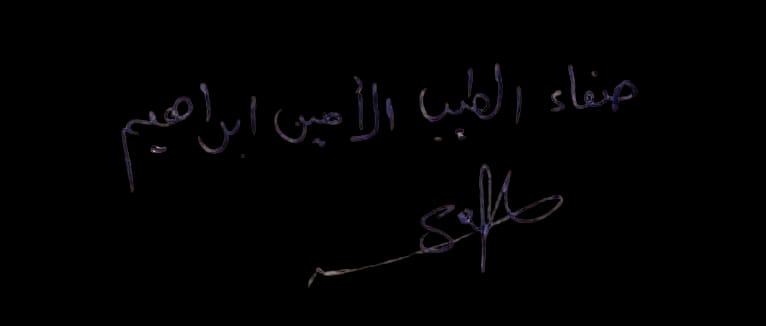 صفاء الطيب الأمين ابراهيم